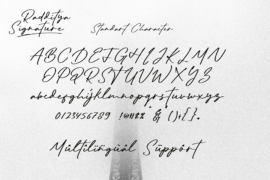 Radditya
Signature
Standart Character
ABCDEFGHIJKLMN
OPQRSTUVWXYZ
abcdefghijklmnopqrstuvwxyz
0123456789 !@#$% & (){}.
Múltilíngüäl Süppört